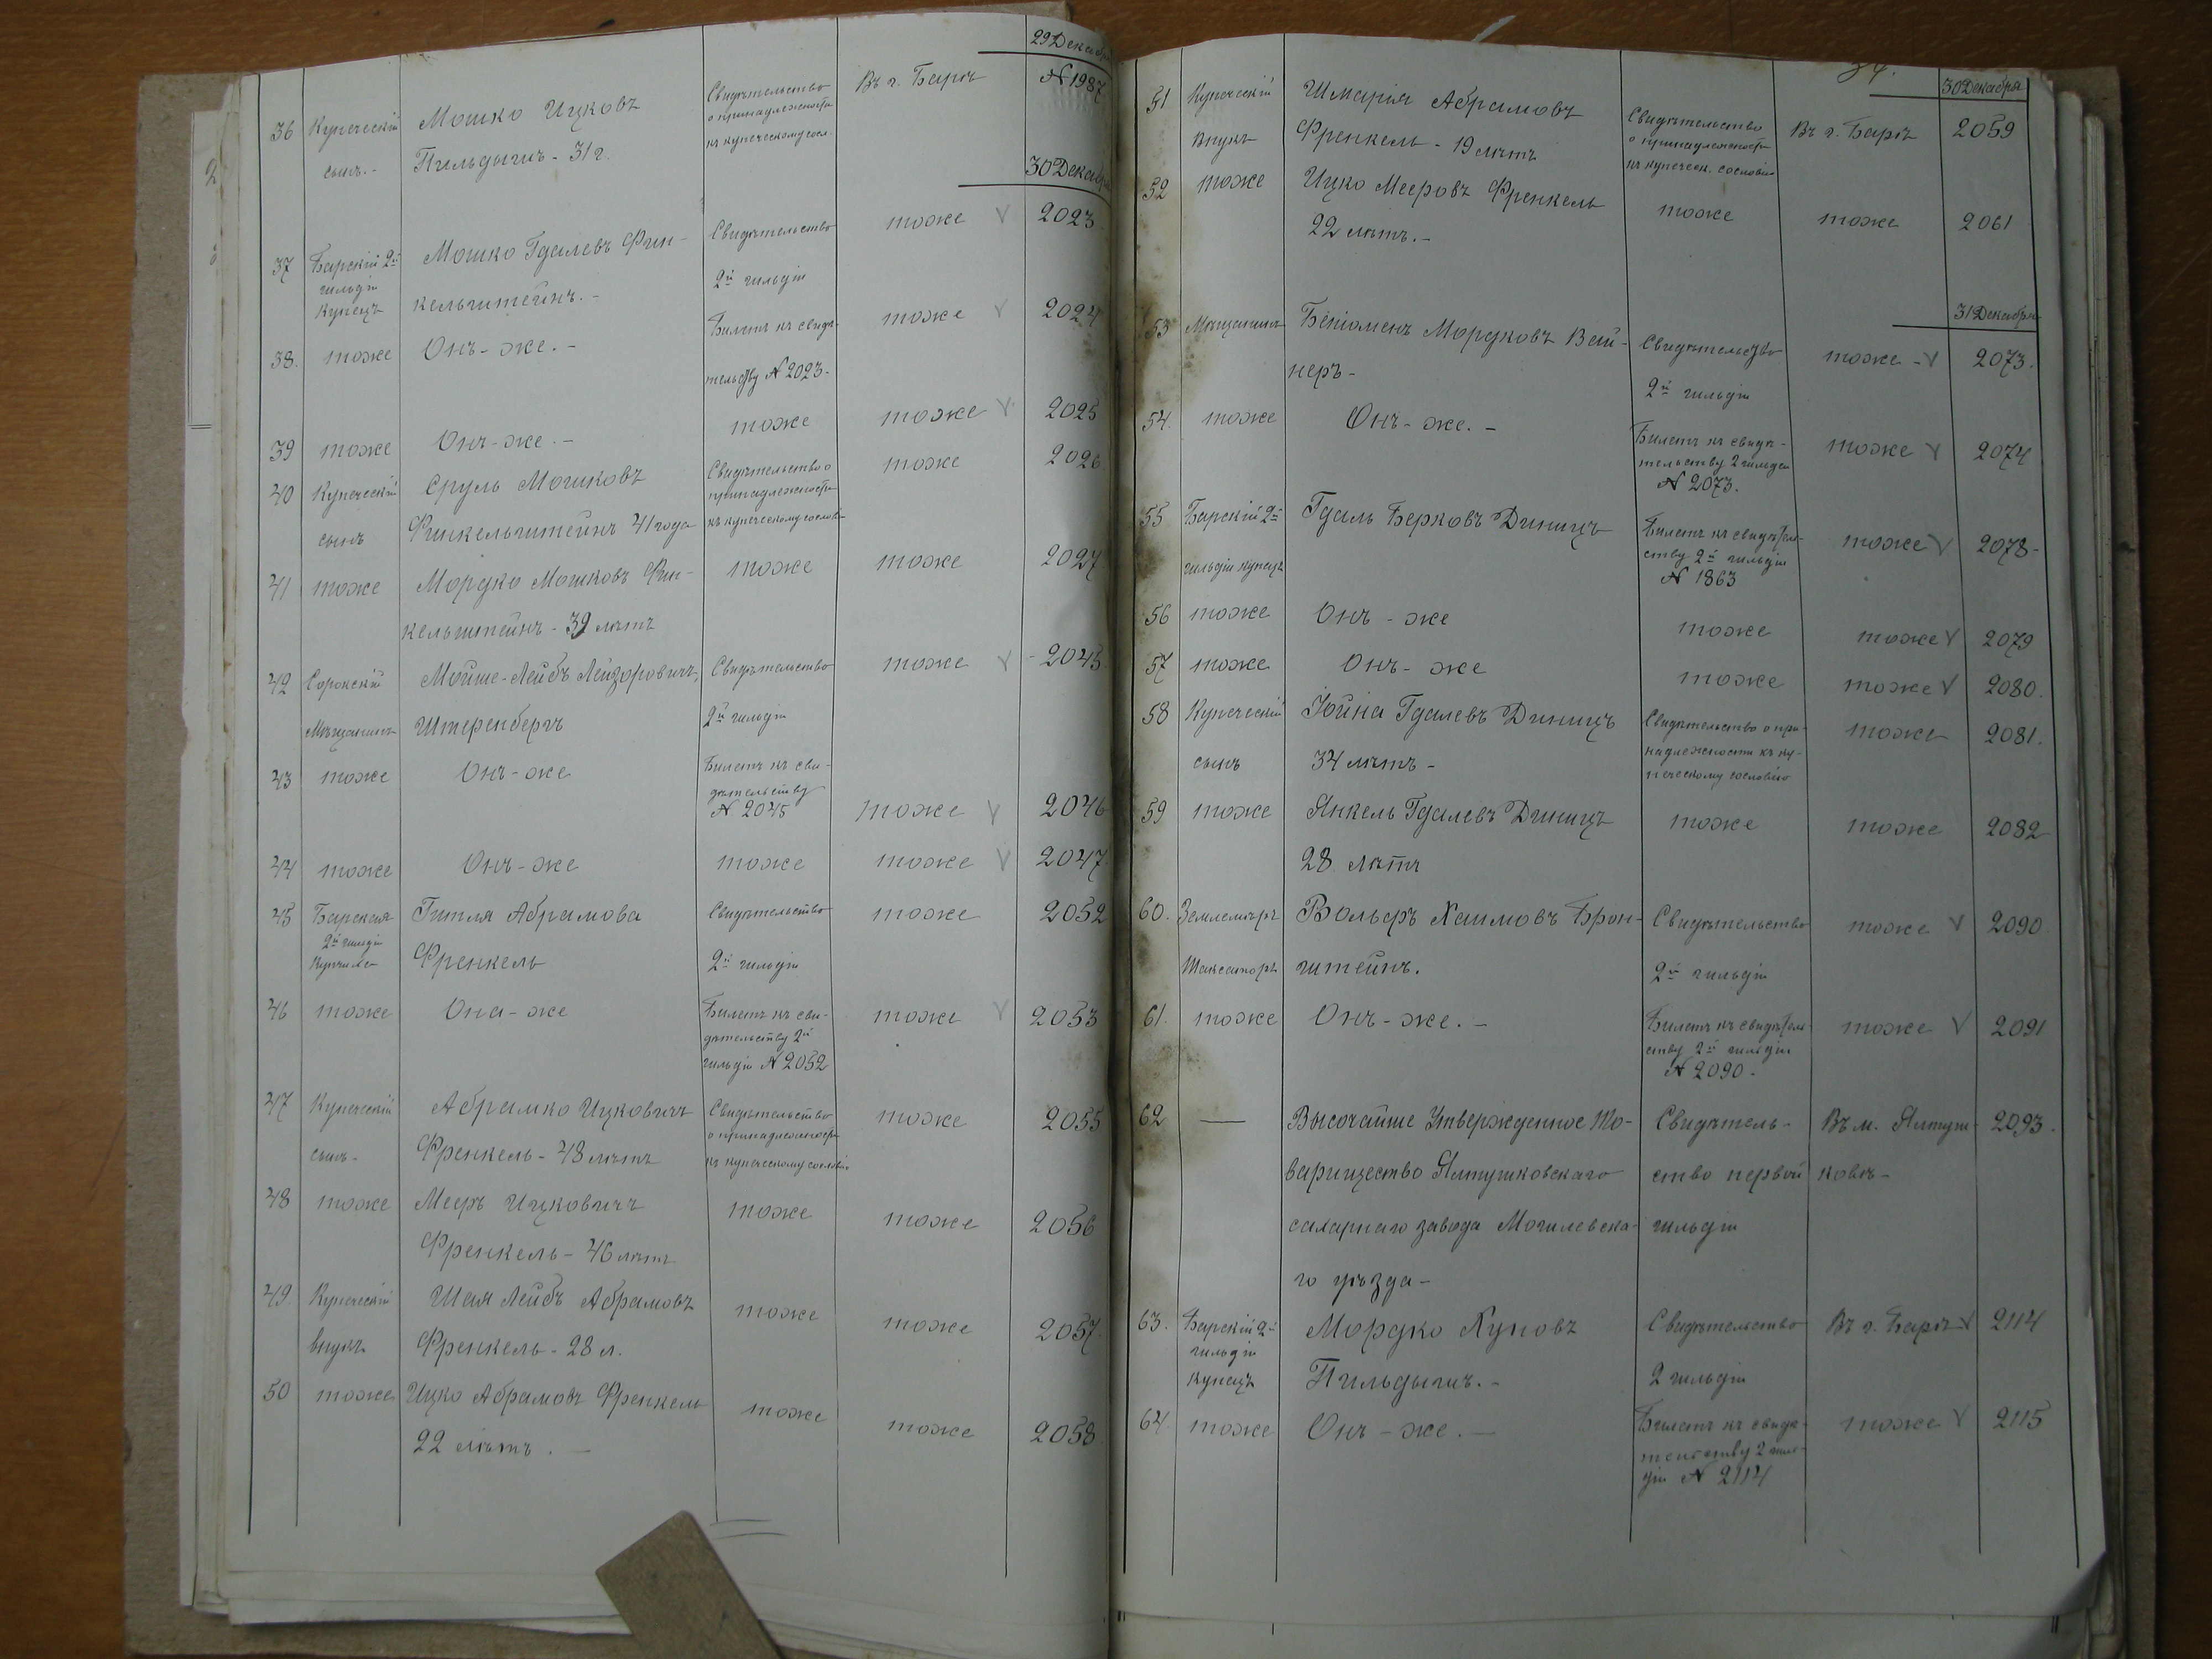 29 Декабр
36 Купеческій Мошко Ицковъ Свидѣтельство Въ г. Барѣ N 1987
сынъ.- Пильдышъ - 31 г. о принадлежности
къ купеческому сосл.
30 Декабр
37 Барскій 2й Мошко Гдалевъ Фин- Свидѣтельство тоже V 2023
гильдіи кельштейнъ.- 2й гильдіи
Купецъ
38. тоже Онъ-же.- Билетъ къ свидѣ- тоже V 2024
тельству N 2023-
39 тоже Онъ-же.- тоже тоже V 2025
40 Купеческій Сруль Мошковъ Свидѣтельство о тоже 2026
сынъ Финкельштейнъ 41 года принадлежности
къ купеческому сослові
41 тоже Мордко Мошковъ Фин- тоже тоже 2027
кельштейнъ - 39 лѣтъ
42 Сорокскій Мойше-Лейбъ Лейзоровичъ, Свидѣтельство тоже V - 2045
Мѣщанинъ Штеренбергъ 2й гильдіи
43 тоже Онъ-же Билетъ къ сви-
дѣтельству
N 2045 тоже V 2046
44 тоже Онъ-же тоже тоже V 2047
45 Барская Гитля Абрамова Свидѣтельство тоже 2052
2й гильдіи Френкель 2й гильдіи
купчиха
46 тоже Она-же Билетъ къ сви- тоже V 2053
дѣтельству 2й
гильдіи N 2052
47 Купеческій Абрамко Ицковичъ Свидѣтельство тоже 2055
сынъ- Френкель - 48 лѣтъ о принадлежности
къ купеческому сословію
48 тоже Мееръ Ицковичъ тоже тоже 2056
Френкель - 46 лѣтъ
49. Купеческій Шая Лейбъ Абрамовъ тоже тоже 2057
внукъ Френкель - 28 л.
50 тоже Ицко Абрамовъ Френкель тоже тоже 2058
22 лѣтъ.-
30 Декабря
51 Купеческій Шмарія Абрамовъ Свидѣтельство Въ г. Барѣ 2059
внукъ Френкель - 19 лѣтъ о принадлежности
къ купеческ. сословію
52 тоже Ицко Мееровъ Френкель тоже тоже 2061
22 лѣтъ.-
31 Декабря
53 Мѣщанинъ Беніоменъ Мордковъ Вай- Свидѣтельство тоже - V 2073.
неръ- 2й гильдіи
54. тоже Онъ-же.- Билетъ къ свидѣ- тоже V 2074
тельству 2 гильдіи
N 2073.
55 Барскій 2й Гдаль Берковъ Диницъ Билетъ къ свидѣтель- тоже V 2078-
гильдіи купецъ ству 2й гильдіи
N 1863
56 тоже Онъ-же тоже тоже V 2079
57 тоже Онъ-же тоже тоже V 2080.
58 Купеческій Іойна Гдалевъ Диницъ Свидѣтельство о при- тоже 2081.
сынъ 34 лѣтъ- надлежности къ ку-
печескому сословію
59 тоже Янкель Гдалевъ Диницъ тоже тоже 2082
28 лѣтъ
60. Землемѣръ Вольфъ Хаимовъ Брон- Свидѣтельство тоже V 2090
Таксаторъ штейнъ. 2й гильдіи
61. тоже Онъ-же.- Билетъ къ свидѣтель- тоже V 2091
ству 2й гильдіи
N 2090-
62 — Высочайше Утвержденное То- Свидѣтель- Въ м. Ялтуш- 2093.
варищество Ялтушковскаго ство первой ковѣ-
сахарнаго завода Могилевска- гильдіи
го уѣзда-
63. Барскій 2й Мордко Куповъ Свидѣтельство Въ г. Барѣ V 2114
гильдіи
купецъ Пильдышъ.- 2 гильдіи
64. тоже Онъ-же.- Билетъ къ свидѣ- тоже V 2115
тельству 2 гиль-
діи N 2114